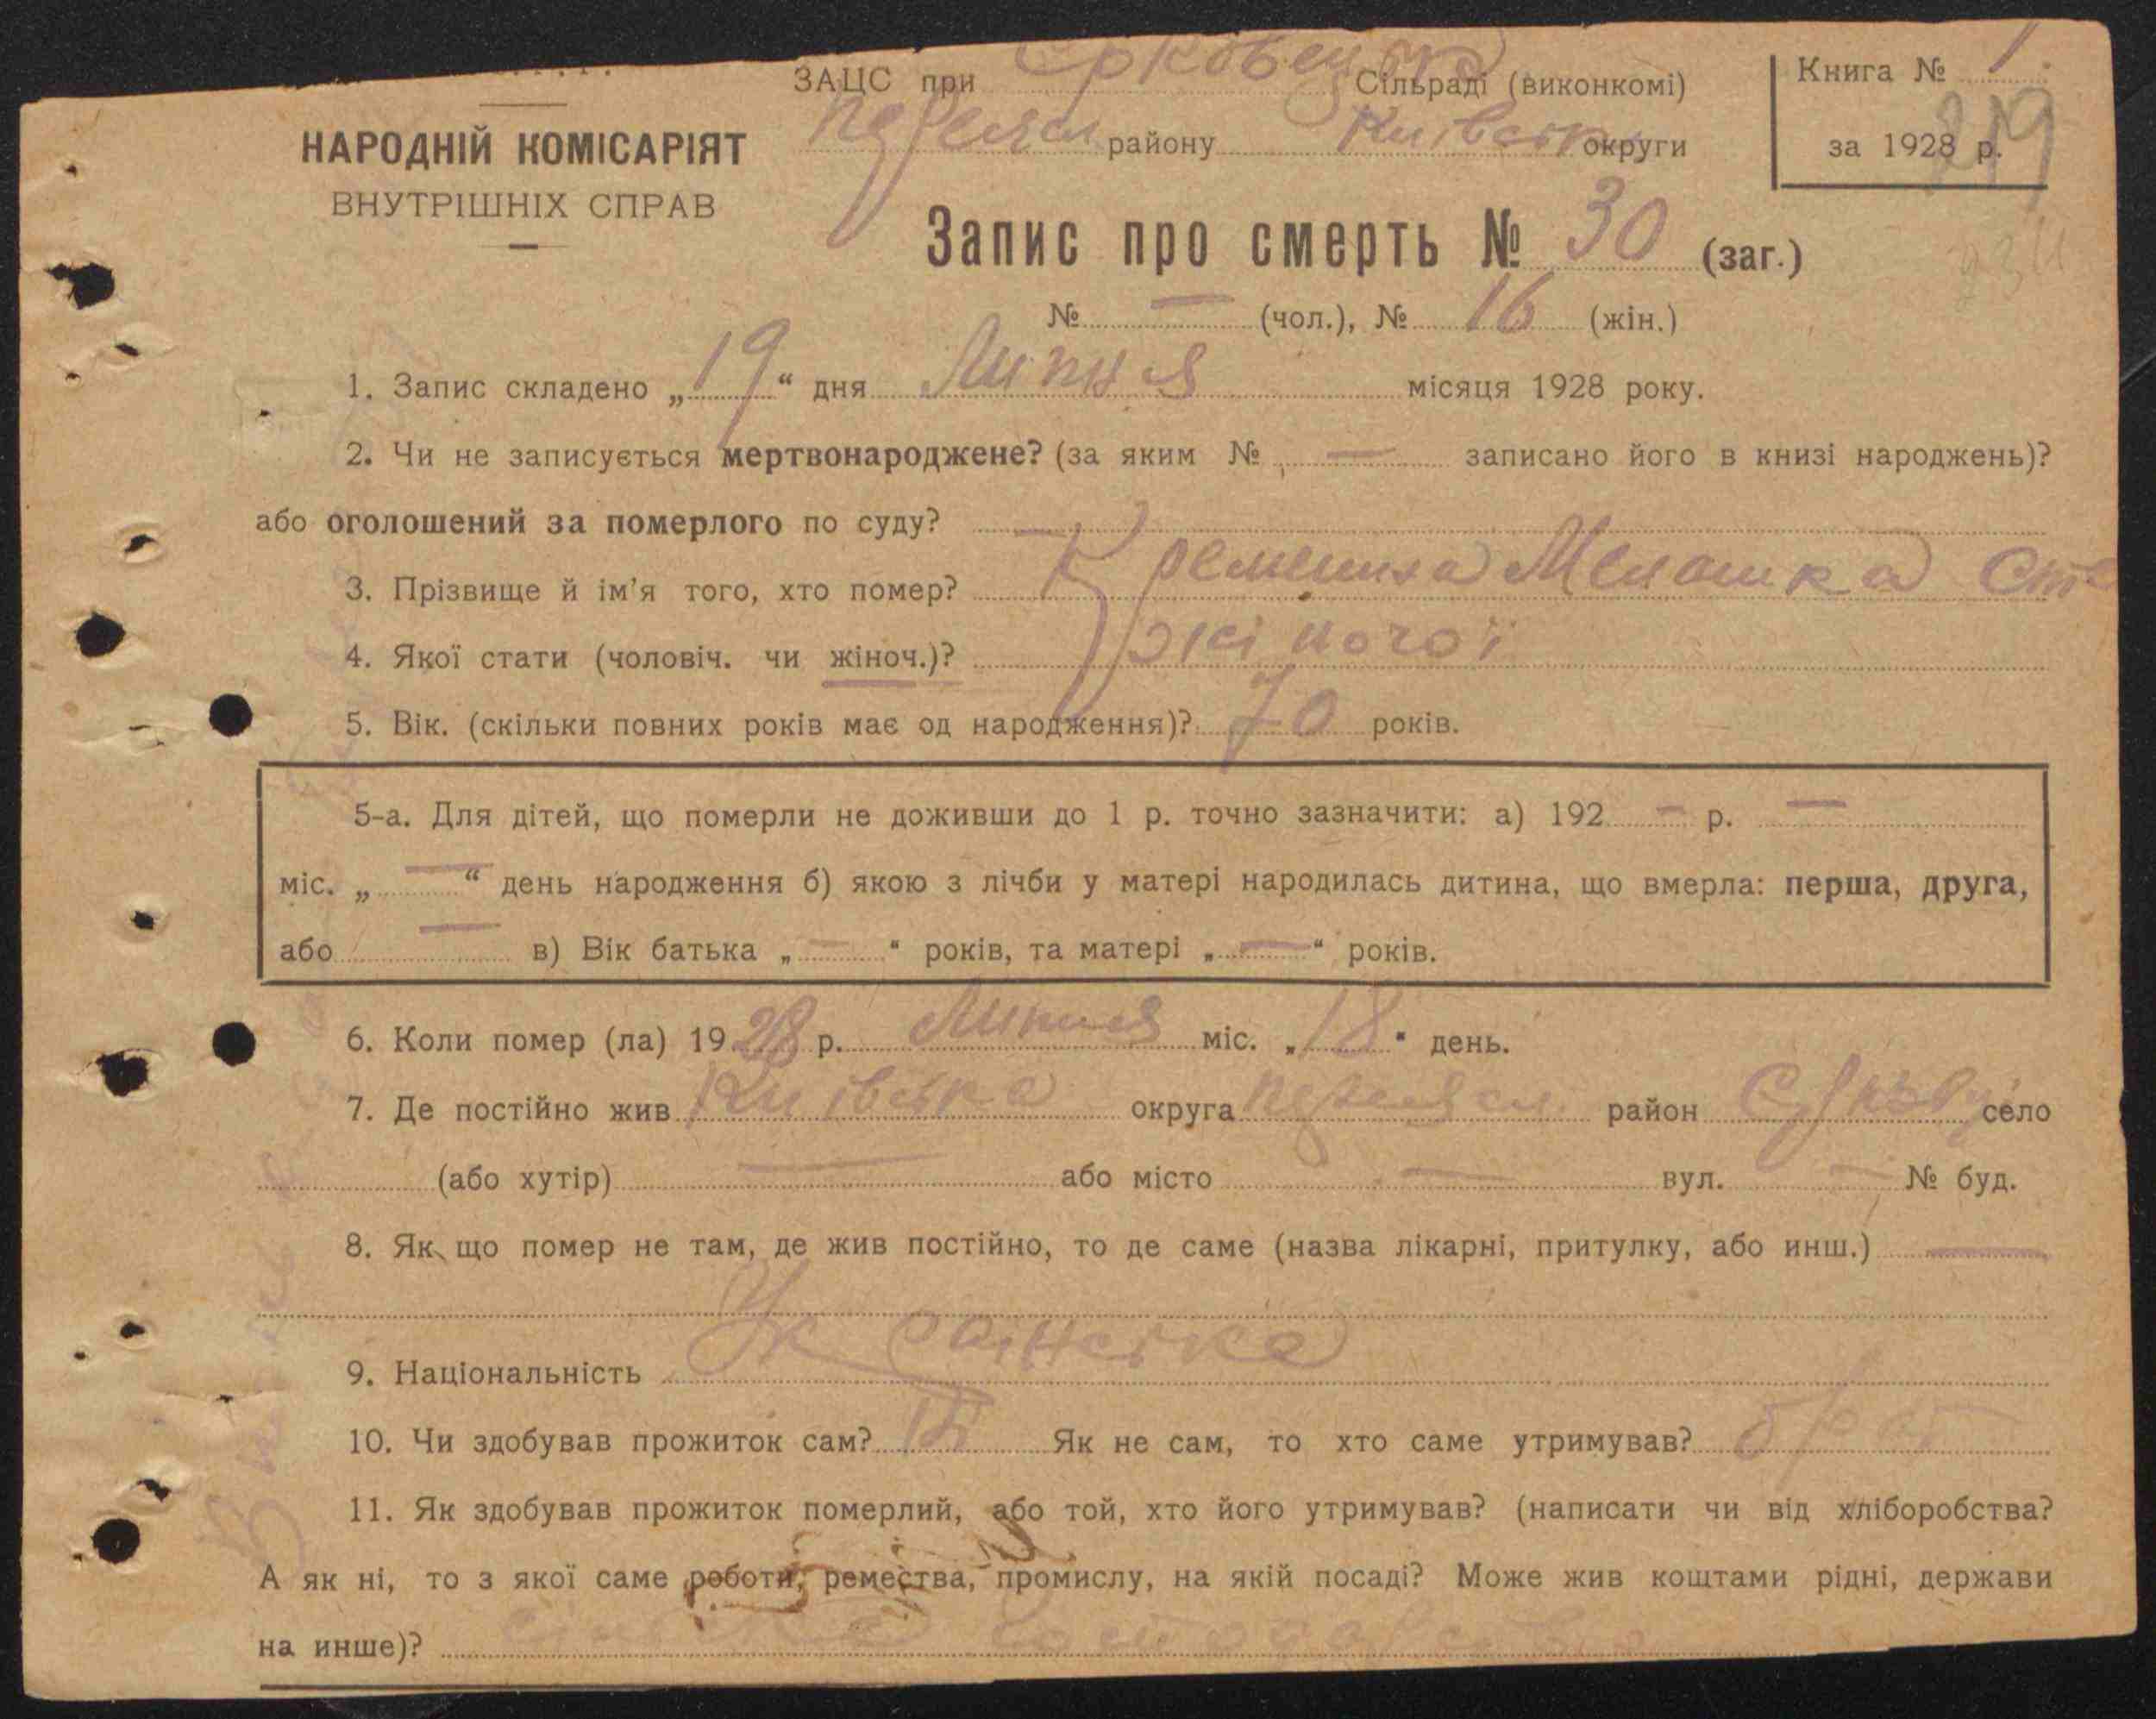 ЗАЦС при Єрковецькій Сільраді (виконкомі)
Книга № 1
НАРОДНІЙ КОМІСАРІЯТ
Переясл району Київської округи
за 1928 р.
219
ВНУТРІШНІХ СПРАВ
Запис про смерть № 30 (заг.)
№ — (чол.), № 16 (жін.)
1. Запис складено „19“ дня Липня місяця 1928 року.
2. Чи не записується мертвонароджене? (за яким № — записано його в книзі народжень)?
або оголошений за померлого по суду? —
3. Прізвище й ім'я того, хто помер? Мелашка Сте
4. Якої стати (чоловіч. чи жіноч.)? жіночої
5. Вік. (скільки повних років має од народження)? 70 років.
5-а. Для дітей, що померли не доживши до 1 р. точно зазначити: а) 192 — р. —
міс. „ — “ день народження б) якою з лічби у матері народилась дитина, що вмерла: перша, друга,
або — в) Вік батька „ — “ років, та матері „ — “ років.
6. Коли помер (ла) 1928 р. Липня міс. „18“ день.
7. Де постійно жив Київська округа Переясл. район село
(або хутір) — або місто — вул. — № буд.
8. Як що помер не там, де жив постійно, то де саме (назва лікарні, притулку, або инш.) —
9. Національність Українська
10. Чи здобував прожиток сам? Ні Як не сам, то хто саме утримував? брат
11. Як здобував прожиток померлий, або той, хто його утримував? (написати чи від хліборобства?
А як ні, то з якої саме роботи, ремества, промислу, на якій посаді? Може жив коштами рідні, держави
на инше)? сільське господарство